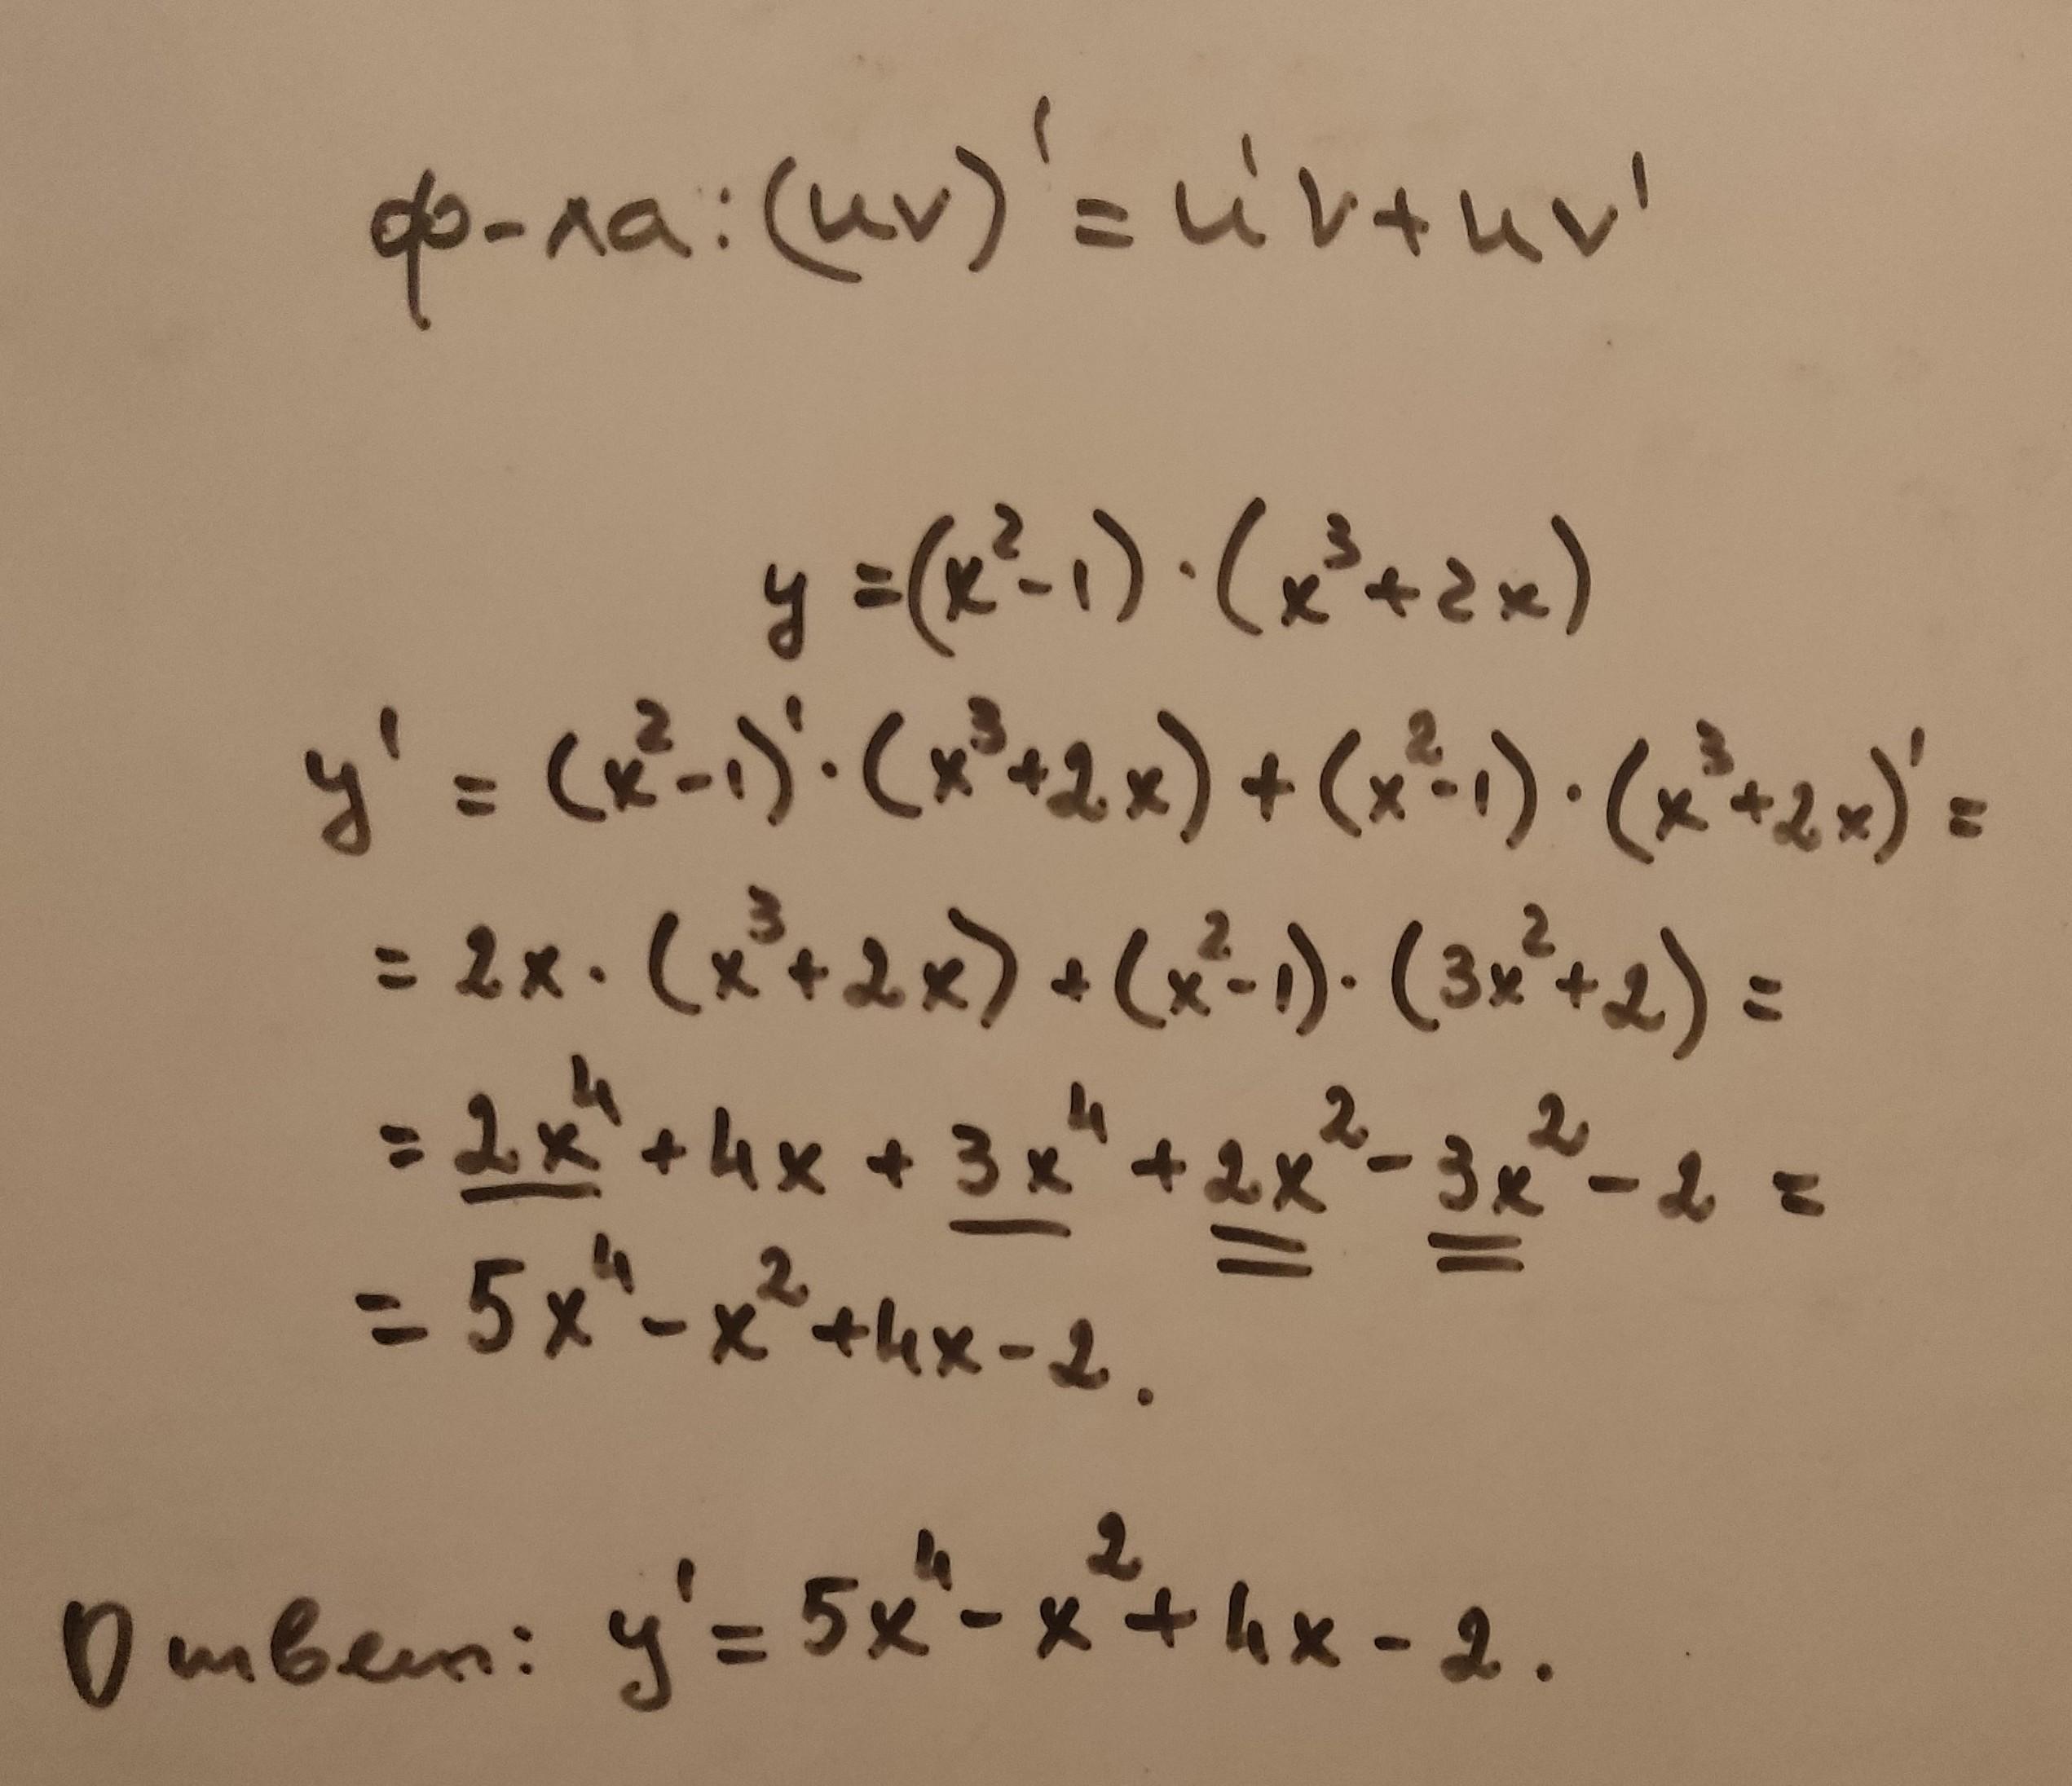 ф-ла: (uv)' = u'v + uv'
y = (x² - 1) · (x³ + 2x)
y' = (x² - 1)' · (x³ + 2x) + (x² - 1) · (x³ + 2x)' =
= 2x · (x³ + 2x) + (x² - 1) · (3x² + 2) =
= 2x⁴ + 4x + 3x⁴ + 2x² - 3x² - 2 =
= 5x⁴ - x² + 4x - 2.
Ответ: y' = 5x⁴ - x² + 4x - 2.